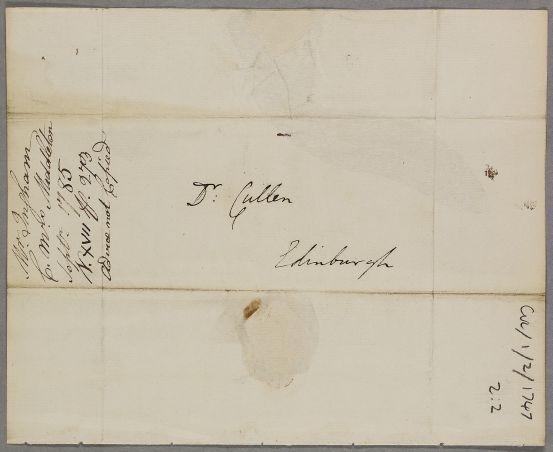 Dr. Cullen
Edinburgh
Mr. Ingham
C. Mrs. Middleton
Septr. 1785
V. XVII P. 273
Advice not Copied
CUL/1/2/1747
2:2